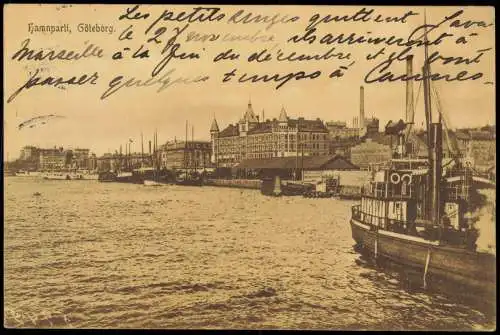 Hamnparti, Göteborg.
Les petits singes quittent Java
le 27 novembre ils arriveront à
Marseille à la fin du décembre et ils vont
passer quelque temps à Cannes